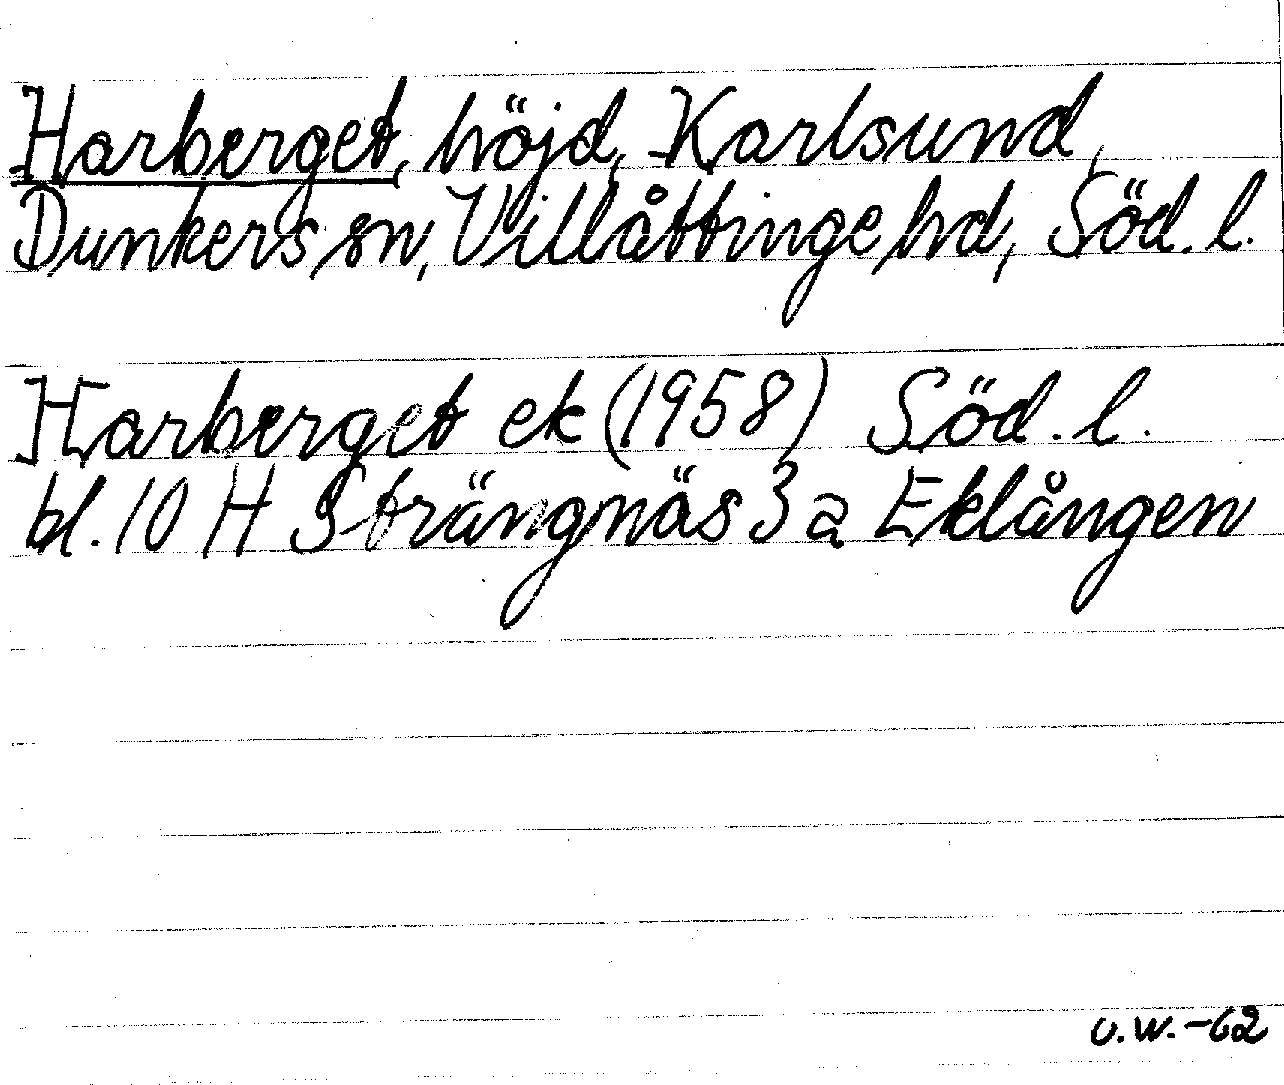 Harberget, höjd, Karlsund,
Dunkers sn, Villåttinge hd, Söd. l.
Harberget ek (1958) Söd. l.
bl. 10 H Strängnäs 3 a Eklången
U.W.-62